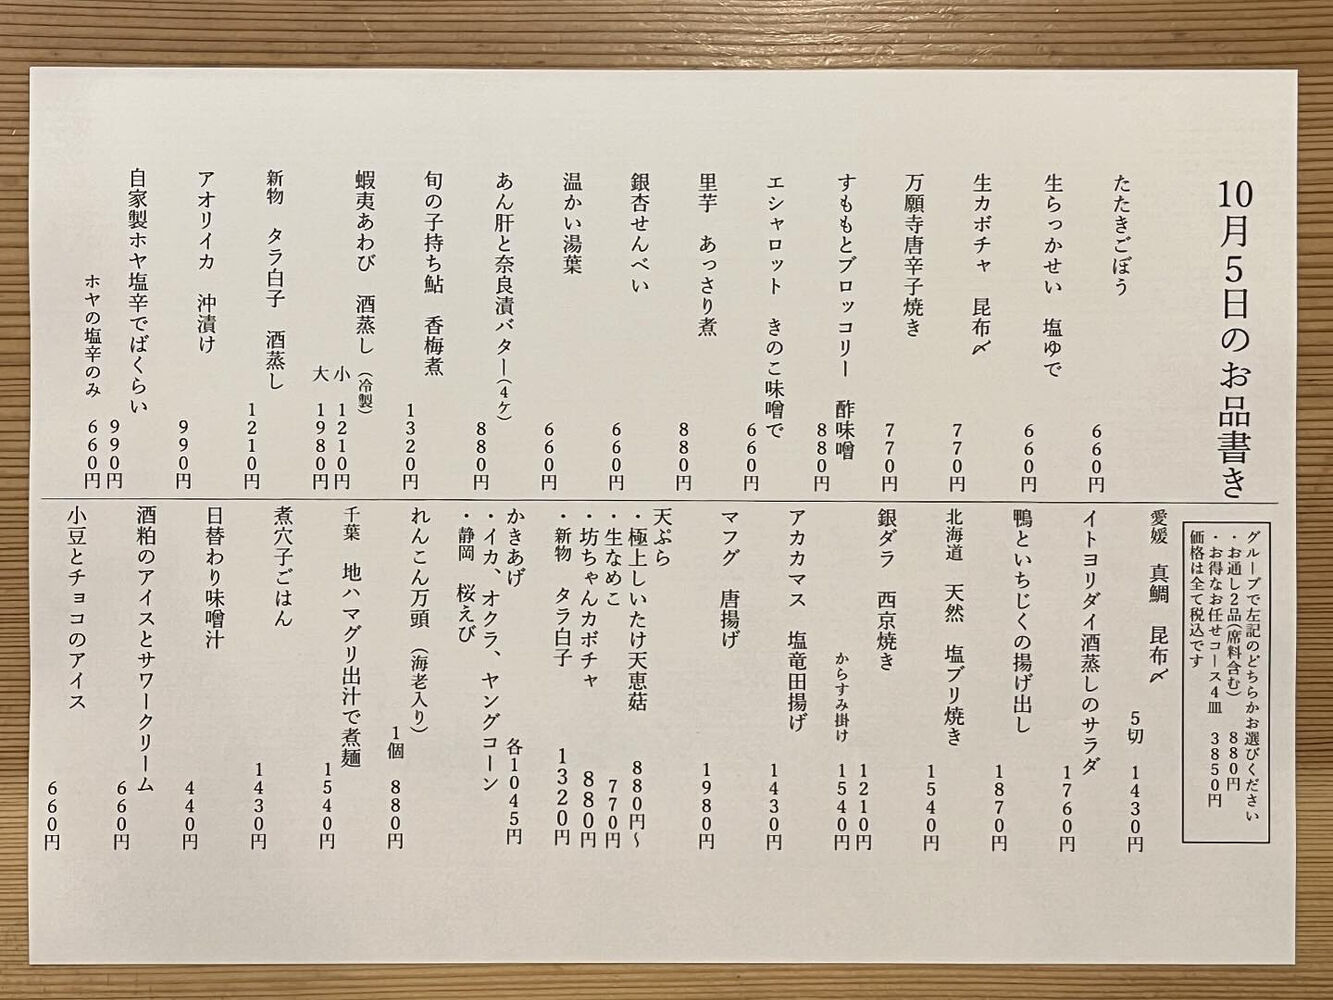 10月5日のお品書き
たたきごぼう
660円
生らっかせい 塩ゆで
660円
生カボチャ 昆布〆
770円
万願寺唐辛子焼き
770円
すももとブロッコリー 酢味噌
880円
エシャロット きのこ味噌で
660円
里芋 あっさり煮
880円
銀杏せんべい
660円
温かい湯葉
660円
あん肝と奈良漬バター(4ケ)
880円
旬の子持ち鮎 香梅煮
1320円
蝦夷あわび 酒蒸し(冷製)
小 1210円
大 1980円
新物 タラ白子 酒蒸し
1210円
アオリイカ 沖漬け
990円
自家製ホヤ塩辛でばくらい
990円
ホヤの塩辛のみ 660円
グループで左記のどちらかお選びください
・お通し2品(席料含む) 880円
・お得なお任せコース4皿 3850円
価格は全て税込です
愛媛 真鯛 昆布〆
5切 1430円
イトヨリダイ酒蒸しのサラダ
1760円
鴨といちじくの揚げ出し
1870円
北海道 天然 塩ブリ焼き
1540円
銀ダラ 西京焼き
1210円
からすみ掛け 1540円
アカカマス 塩竜田揚げ
1430円
マフグ 唐揚げ
1980円
天ぷら
・極上しいたけ天恵菇 880円～
・生なめこ 770円
・坊ちゃんカボチャ 880円
・新物 タラ白子 1320円
かきあげ 各1045円
・イカ、オクラ、ヤングコーン
・静岡 桜えび
れんこん万頭 (海老入り)
1個 880円
千葉 地ハマグリ出汁で煮麺
1540円
煮穴子ごはん
1430円
日替わり味噌汁
440円
酒粕のアイスとサワークリーム
660円
小豆とチョコのアイス
660円